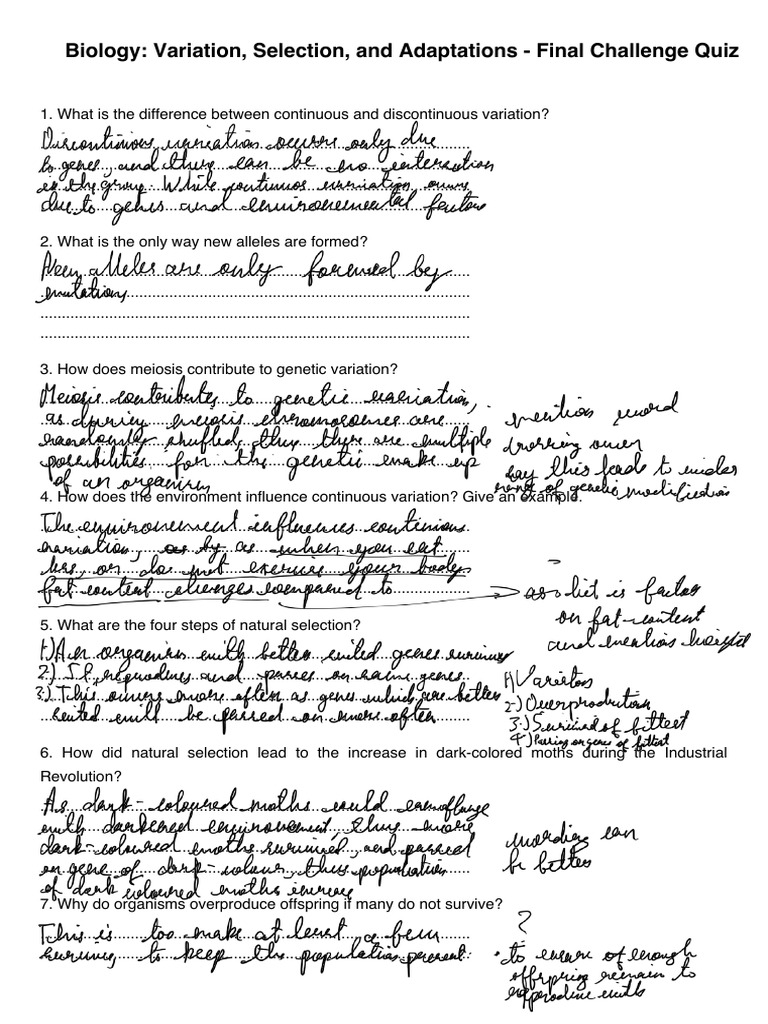 Biology: Variation, Selection, and Adaptations - Final Challenge Quiz
1. What is the difference between continuous and discontinuous variation?
Discontinious variation occurs only due
to genes, and there can be no
in the group. While continuos variation occurs
due to genes and environemental factors
2. What is the only way new alleles are formed?
New alleles are only formed by
mutations
3. How does meiosis contribute to genetic variation?
Meiosis contributes to genetic variation,
as during meiosis chromosomes are
randomly shufled, thus there are multiple
possibilities for the genetic make up
of an organism
mention word
crossing over
say this leads to wider
range of genetic modification
4. How does the environment influence continuous variation? Give an example.
The environement influences continious
variation, as when you eat
less, or do not exercise your body
fat content changes compared to
as diet is factor
on fat-content
and mention height
5. What are the four steps of natural selection?
1.) An organism with better suited genes survives
2.) It reproduces and passes on same genes
3.) This occurs more often as genes which are better
suited will be passed on more often
1) Variation
2.) Overproduction
3.) Survival of fittest
4.) Passing on genes of fittest
6. How did natural selection lead to the increase in dark-colored moths during the Industrial
Revolution?
As dark-coloured moths could camouflage
with darkened environement, thus more
dark-coloured moths survived and passed
on gene of dark-colour, thus population
of dark coloured moths
wording can
be better
7. Why do organisms overproduce offspring if many do not survive?
This is too make at least a few
survive, to keep the population present.
?
• to ensure of enough
offspring remain to
reproduce